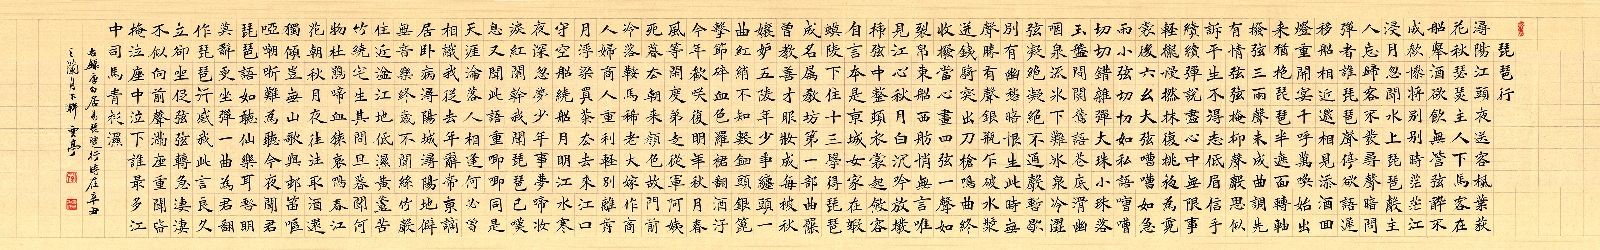 琵琶行
潯陽江頭夜送客楓葉荻
花秋瑟瑟主人下馬客在
船舉酒欲飲無管弦醉不
成歡慘將別別時茫茫江
浸月忽聞水上琵琶聲主
人忘歸客不發尋聲暗問
彈者誰琵琶聲停欲語遲
移船相近邀相見添酒回
燈重開宴千呼萬喚始出
來猶抱琵琶半遮面轉軸
撥弦三兩聲未成曲調先
有情弦弦掩抑聲聲思似
訴平生不得志低眉信手
續續彈說盡心中無限事
輕攏慢撚抹復挑初為霓
裳後六幺大弦嘈嘈如急
雨小弦切切如私語嘈嘈
切切錯雜彈大珠小珠落
玉盤間關鶯語花底滑幽
咽泉流冰下難冰泉冷澀
弦凝絕凝絕不通聲暫歇
別有幽愁暗恨生此時無
聲勝有聲銀瓶乍破水漿
迸鐵騎突出刀槍鳴曲終
收撥當心畫四弦一聲如
裂帛東船西舫悄無言唯
見江心秋月白沉吟放撥
插弦中整頓衣裳起斂容
自言本是京城女家在蝦
蟆陵下住十三學得琵琶
成名屬教坊第一部曲罷
曾教善才服妝成每被秋
娘妒五陵年少爭纏頭一
曲紅綃不知數鈿頭銀篦
擊節碎血色羅裙翻酒汙
今年歡笑復明年秋月春
風等閒度弟走從軍阿姨
死暮去朝來顏色故門前
冷落鞍馬稀老大嫁作商
人婦商人重利輕別離前
月浮梁買茶去去來江口
守空船繞船月明江水寒
夜深忽夢少年事夢啼妝
淚紅闌幹我聞琵琶已嘆
息又聞此語重唧唧同是
天涯淪落人相逢何必曾
相識我從去年辭帝京謫
居臥病潯陽城潯陽地僻
無音樂終歲不聞絲竹聲
住近湓江地低濕黃蘆苦
竹繞宅生其間旦暮聞何
物杜鵑啼血猿哀鳴春江
花朝秋月夜往往取酒還
獨傾豈無山歌與村笛嘔
啞嘲哳難為聽今夜聞君
琵琶語如聽仙樂耳暫明
莫辭更坐彈一曲為君翻
作琵琶行感我此言良久
立卻坐促弦弦轉急淒淒
不似向前聲滿座重聞皆
掩泣座中泣下誰最多江
州司馬青衫濕
右錄唐白居易琵琶行時在辛丑
之蘭月下澣